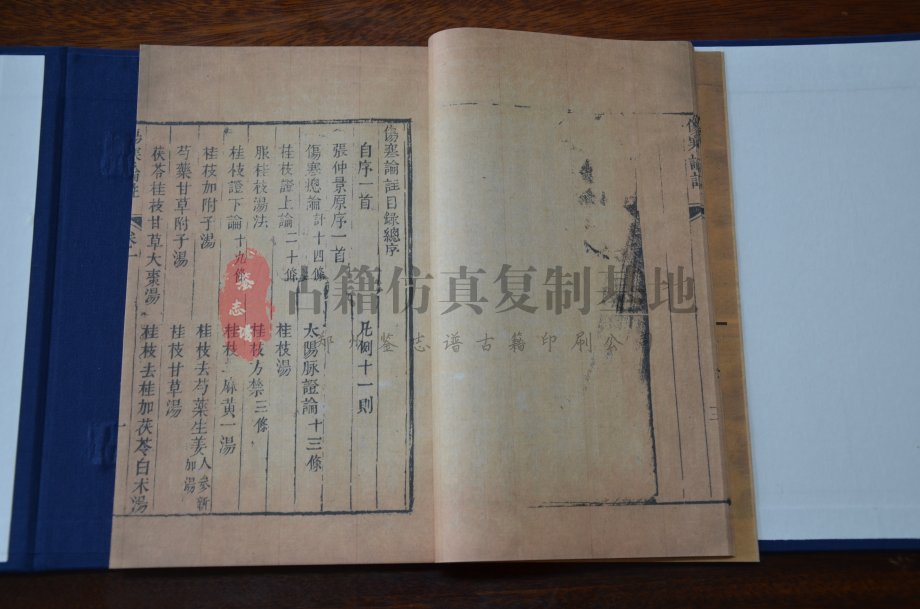 傷寒論註
二
傷寒論註目錄總序
自序一首 凡例十一則
張仲景原序一首
傷寒總論計十四條 太陽脉證論十三條
桂枝證上論二十條 桂枝湯
服桂枝湯法 桂枝方禁三條
桂枝證下論十九條 桂枝 麻黃一湯
桂枝加附子湯 桂枝去芍藥生姜人參新加湯
芍藥甘草附子湯 桂枝甘草湯
茯苓桂枝甘草大棗湯 桂枝去桂加茯苓白术湯
傷寒論註 卷一
一
鉴志谱
古籍仿真复制基地
郑州鉴志谱古籍印刷公